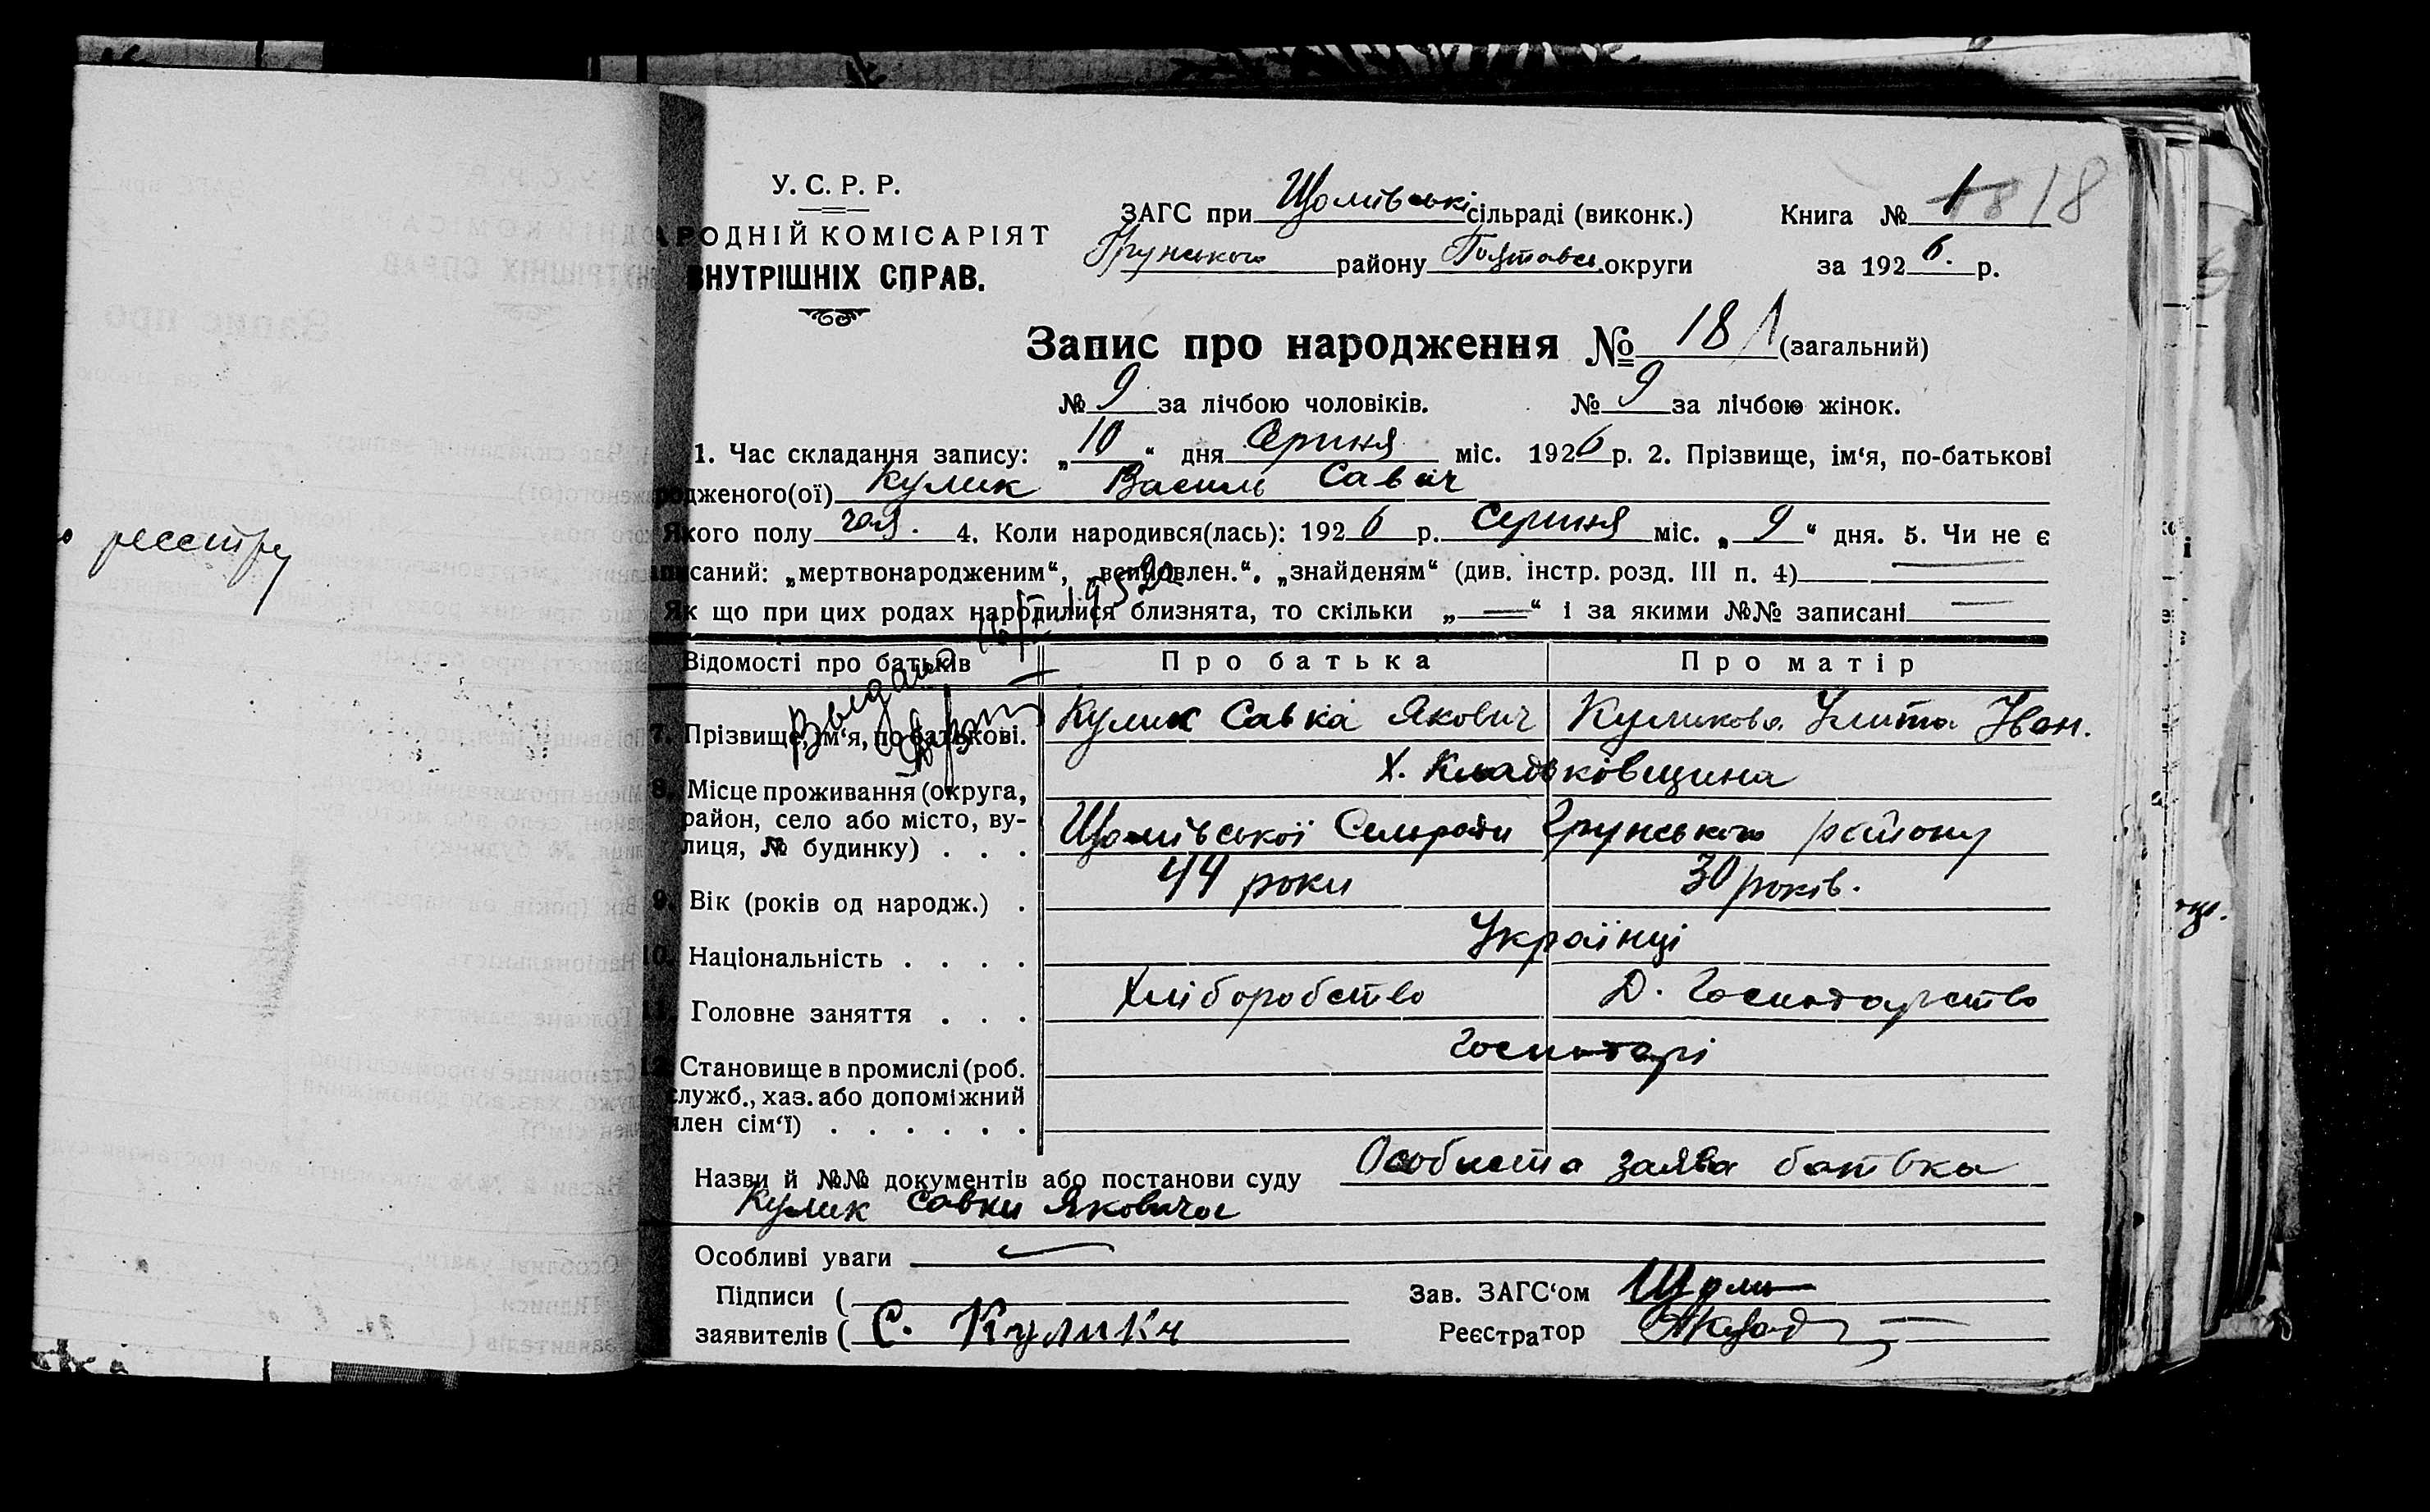 реєстру
У. С. Р. Р.
АРОДНІЙ КОМІСАРІЯТ
ВНУТРІШНІХ СПРАВ.
ЗАГС при Щомівські сільраді (виконк.)
Грунського району Полтавсь округи
Книга № 1 18
за 1926. р.
Запис про народження № 18 (загальний)
№ 9 за лічбою чоловіків. № 9 за лічбою жінок.
1. Час складання запису: „10“ дня Серпня міс. 1926 р. 2. Прізвище, ім‘я, по-батькові
родженого(ої) Кулик Василь Савич
Якого полу чол. 4. Коли народився(лась): 1926 р. Серпня міс. „9“ дня. 5. Чи не є
писаний: „мертвонародженим“, „всиновлен.“, „знайденям“ (див. інстр. розд. III п. 4)
Як що при цих родах народилися близнята, то скільки „—“ і за якими №№ записані —
Відомості про батьків Про батька Про матір
7. Прізвище, ім‘я, по батькові. Кулик Савка Якович Куликова Улита Іван.
Х. Кладьківщина
8. Місце проживання (округа,
район, село або місто, ву-
лиця, № будинку) . . . Щомівської Сельради Грунського району
9. Вік (років од народж.) . 44 роки 30 років.
10. Національність . . . . Українці
11. Головне заняття . . . Хліборобство Д. Господарство
Господарі
12. Становище в промислі (роб.
служб., хаз. або допоміжний
член сім‘ї) . . . . . .
Назви й №№ документів або постанови суду Особиста заява батька
Кулик Савки Яковича
Особливі уваги —
Підписи (
заявителів ( С. Кулик
Зав. ЗАГС‘ом
Реєстратор